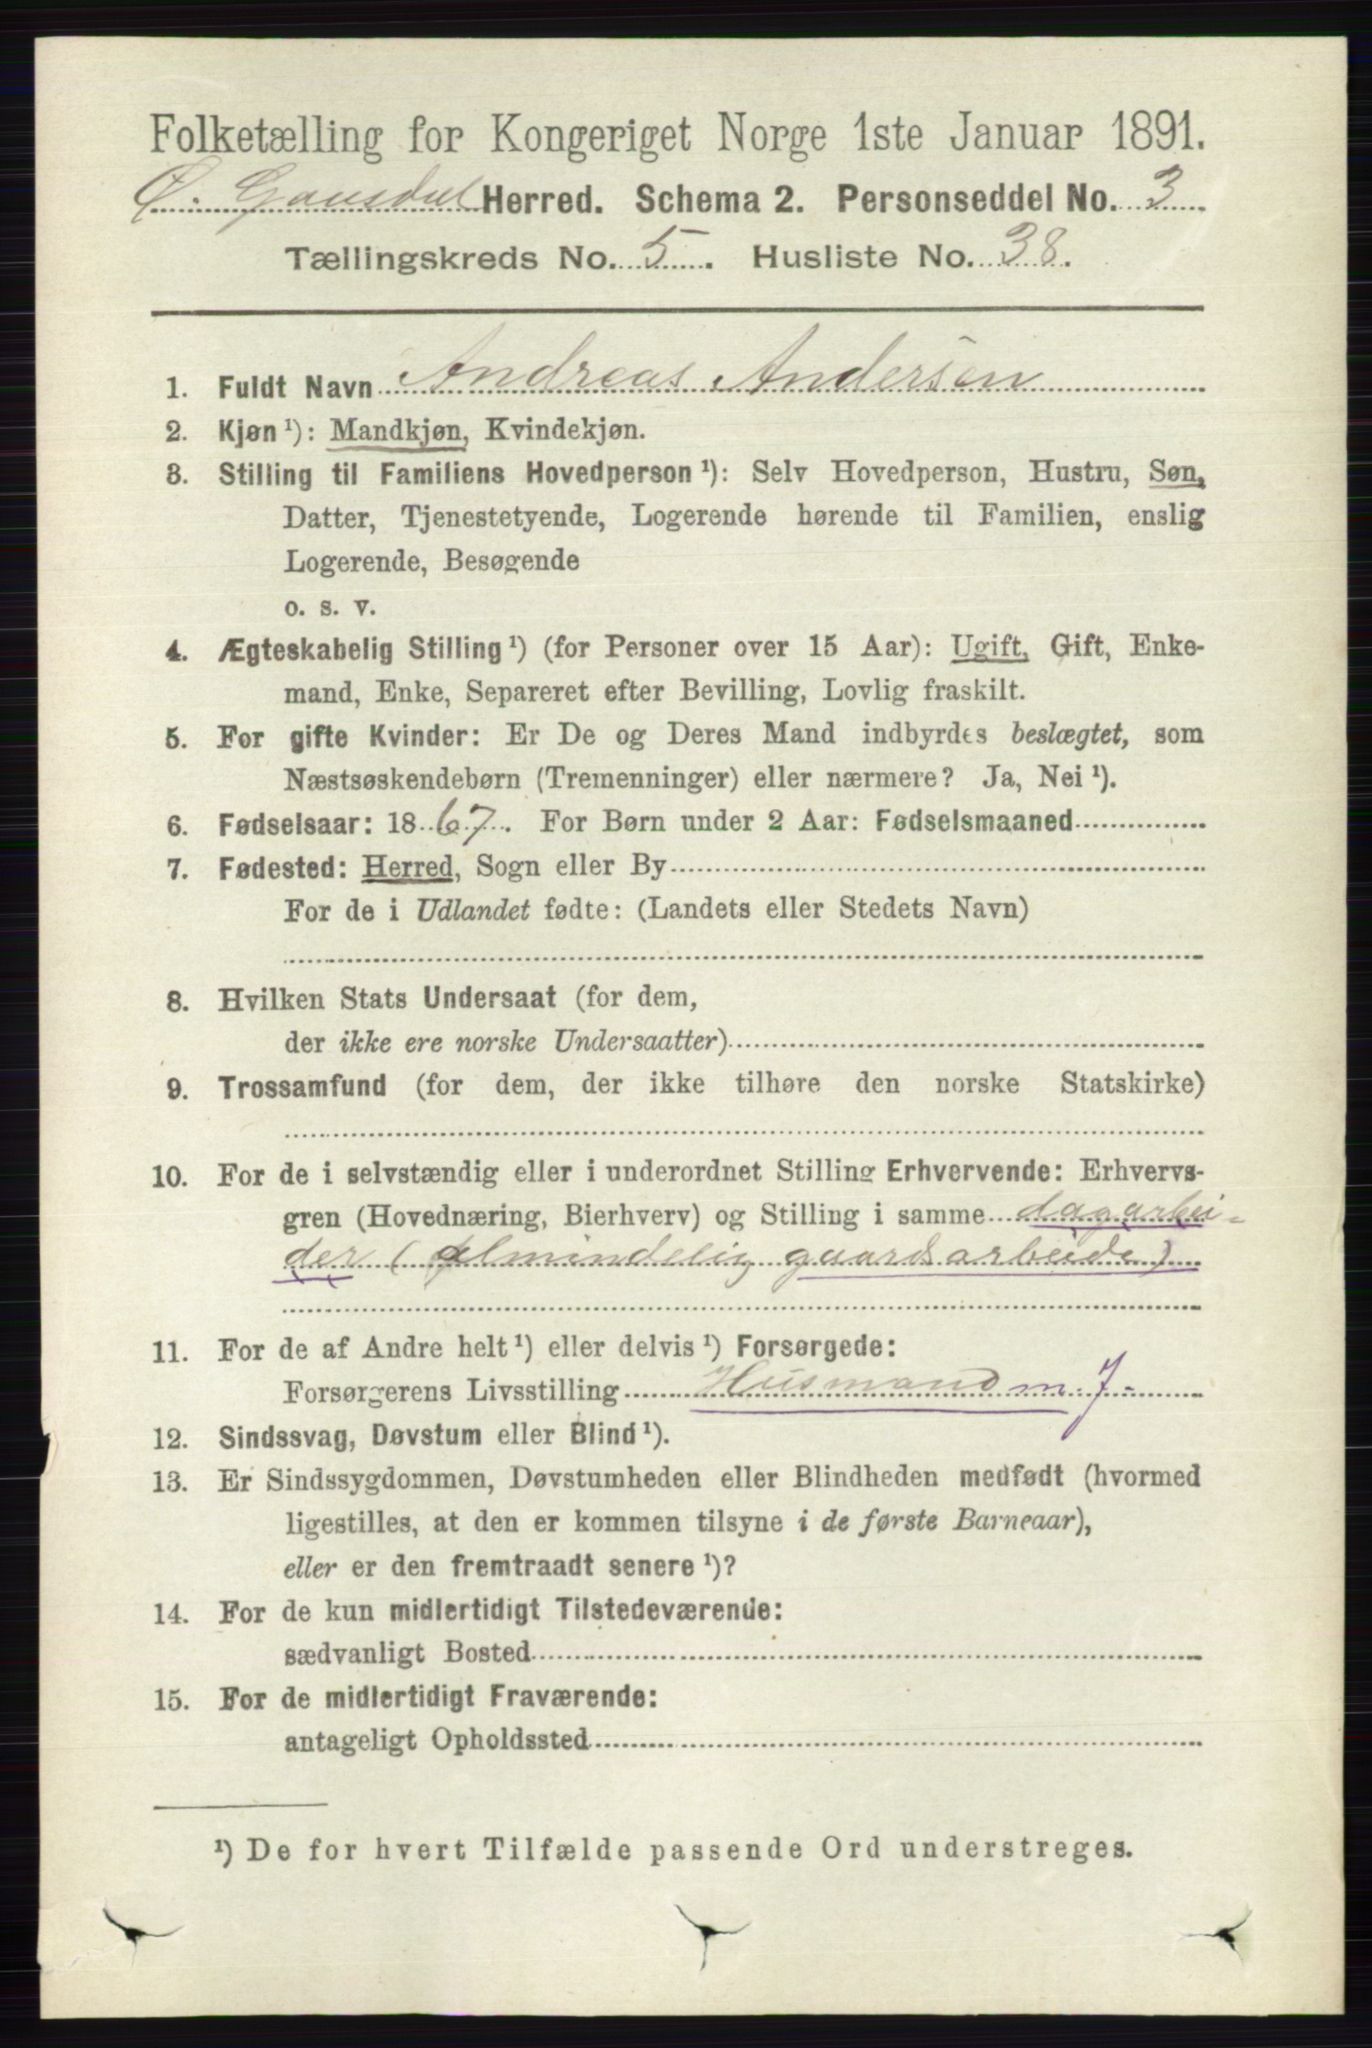 Folketælling for Kongeriget Norge 1ste Januar 1891.
Ø. Gausdal Herred. Schema 2. Personseddel No. 3
Tællingskreds No. 5. Husliste No. 38.
1. Fuldt Navn Andreas Andersen
2. Kjøn ¹): Mandkjøn, Kvindekjøn.
3. Stilling til Familiens Hovedperson ¹): Selv Hovedperson, Hustru, Søn,
Datter, Tjenestetyende, Logerende hørende til Familien, enslig
Logerende, Besøgende
o. s. v.
4. Ægteskabelig Stilling ¹) (for Personer over 15 Aar): Ugift, Gift, Enke-
mand, Enke, Separeret efter Bevilling, Lovlig fraskilt.
5. For gifte Kvinder: Er De og Deres Mand indbyrdes beslægtet, som
Næstsøskendebørn (Tremenninger) eller nærmere? Ja, Nei ¹).
6. Fødselsaar: 1867. For Børn under 2 Aar: Fødselsmaaned
7. Fødested: Herred, Sogn eller By
For de i Udlandet fødte: (Landets eller Stedets Navn)
8. Hvilken Stats Undersaat (for dem,
der ikke ere norske Undersaatter)
9. Trossamfund (for dem, der ikke tilhøre den norske Statskirke)
10. For de i selvstændig eller i underordnet Stilling Erhvervende: Erhvervs-
gren (Hovednæring, Bierhverv) og Stilling i samme dagarbei-
der (almindelig gaardsarbeide)
11. For de af Andre helt ¹) eller delvis ¹) Forsørgede:
Forsørgerens Livsstilling Husmand m. J.
12. Sindssvag, Døvstum eller Blind ¹).
13. Er Sindssygdommen, Døvstumheden eller Blindheden medfødt (hvormed
ligestilles, at den er kommen tilsyne i de første Barneaar),
eller er den fremtraadt senere ¹)?
14. For de kun midlertidigt Tilstedeværende:
sædvanligt Bosted
15. For de midlertidigt Fraværende:
antageligt Opholdssted
¹) De for hvert Tilfælde passende Ord understreges.